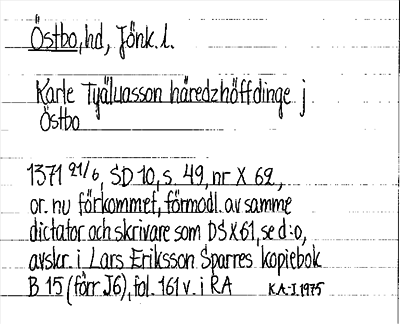 Östbo, hd, Jönk. l.
Karle Tyäluasson häredzhöffdinge j
Östbo
1371 21/6, SD 10, s. 49, nr X 62,
or. nu förkommet, förmodl. av samme
dictator och skrivare som DS X 61, se d:o,
avskr. i Lars Eriksson Sparres kopiebok
B 15 (förr J6), fol. 161 v. i RA K.A-J. 1975